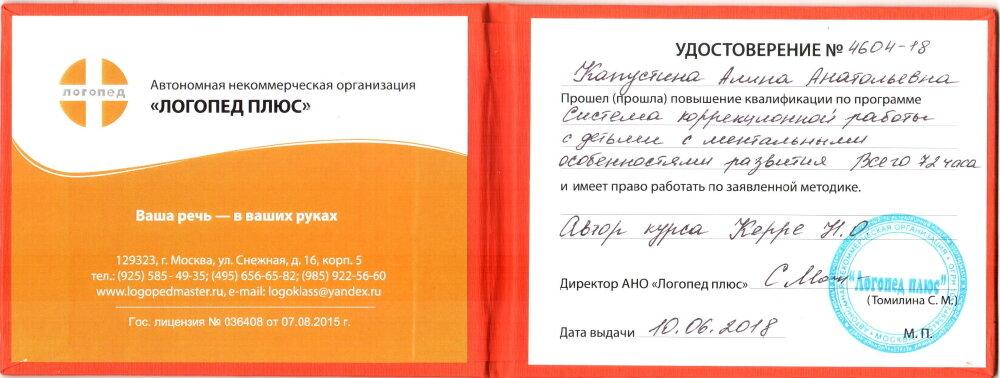 логопед
Автономная некоммерческая организация
«ЛОГОПЕД ПЛЮС»
Ваша речь — в ваших руках
129323, г. Москва, ул. Снежная, д. 16, корп. 5
тел.: (925) 585 - 49-35; (495) 656-65-82; (985) 922-56-60
www.logopedmaster.ru, e-mail: logoklass@yandex.ru
Гос. лицензия № 036408 от 07.08.2015 г.
УДОСТОВЕРЕНИЕ № 4604-18
Капустина Алина Анатольевна
Прошел (прошла) повышение квалификации по программе
Система коррекционной работы
с детьми с ментальными
особенностями развития Всего 72 часа
и имеет право работать по заявленной методике.
Автор курса Керре Н.О
Директор АНО «Логопед плюс»
"Логопед плюс"
(Томилина С. М.)
Дата выдачи 10.06.2018
М. П.